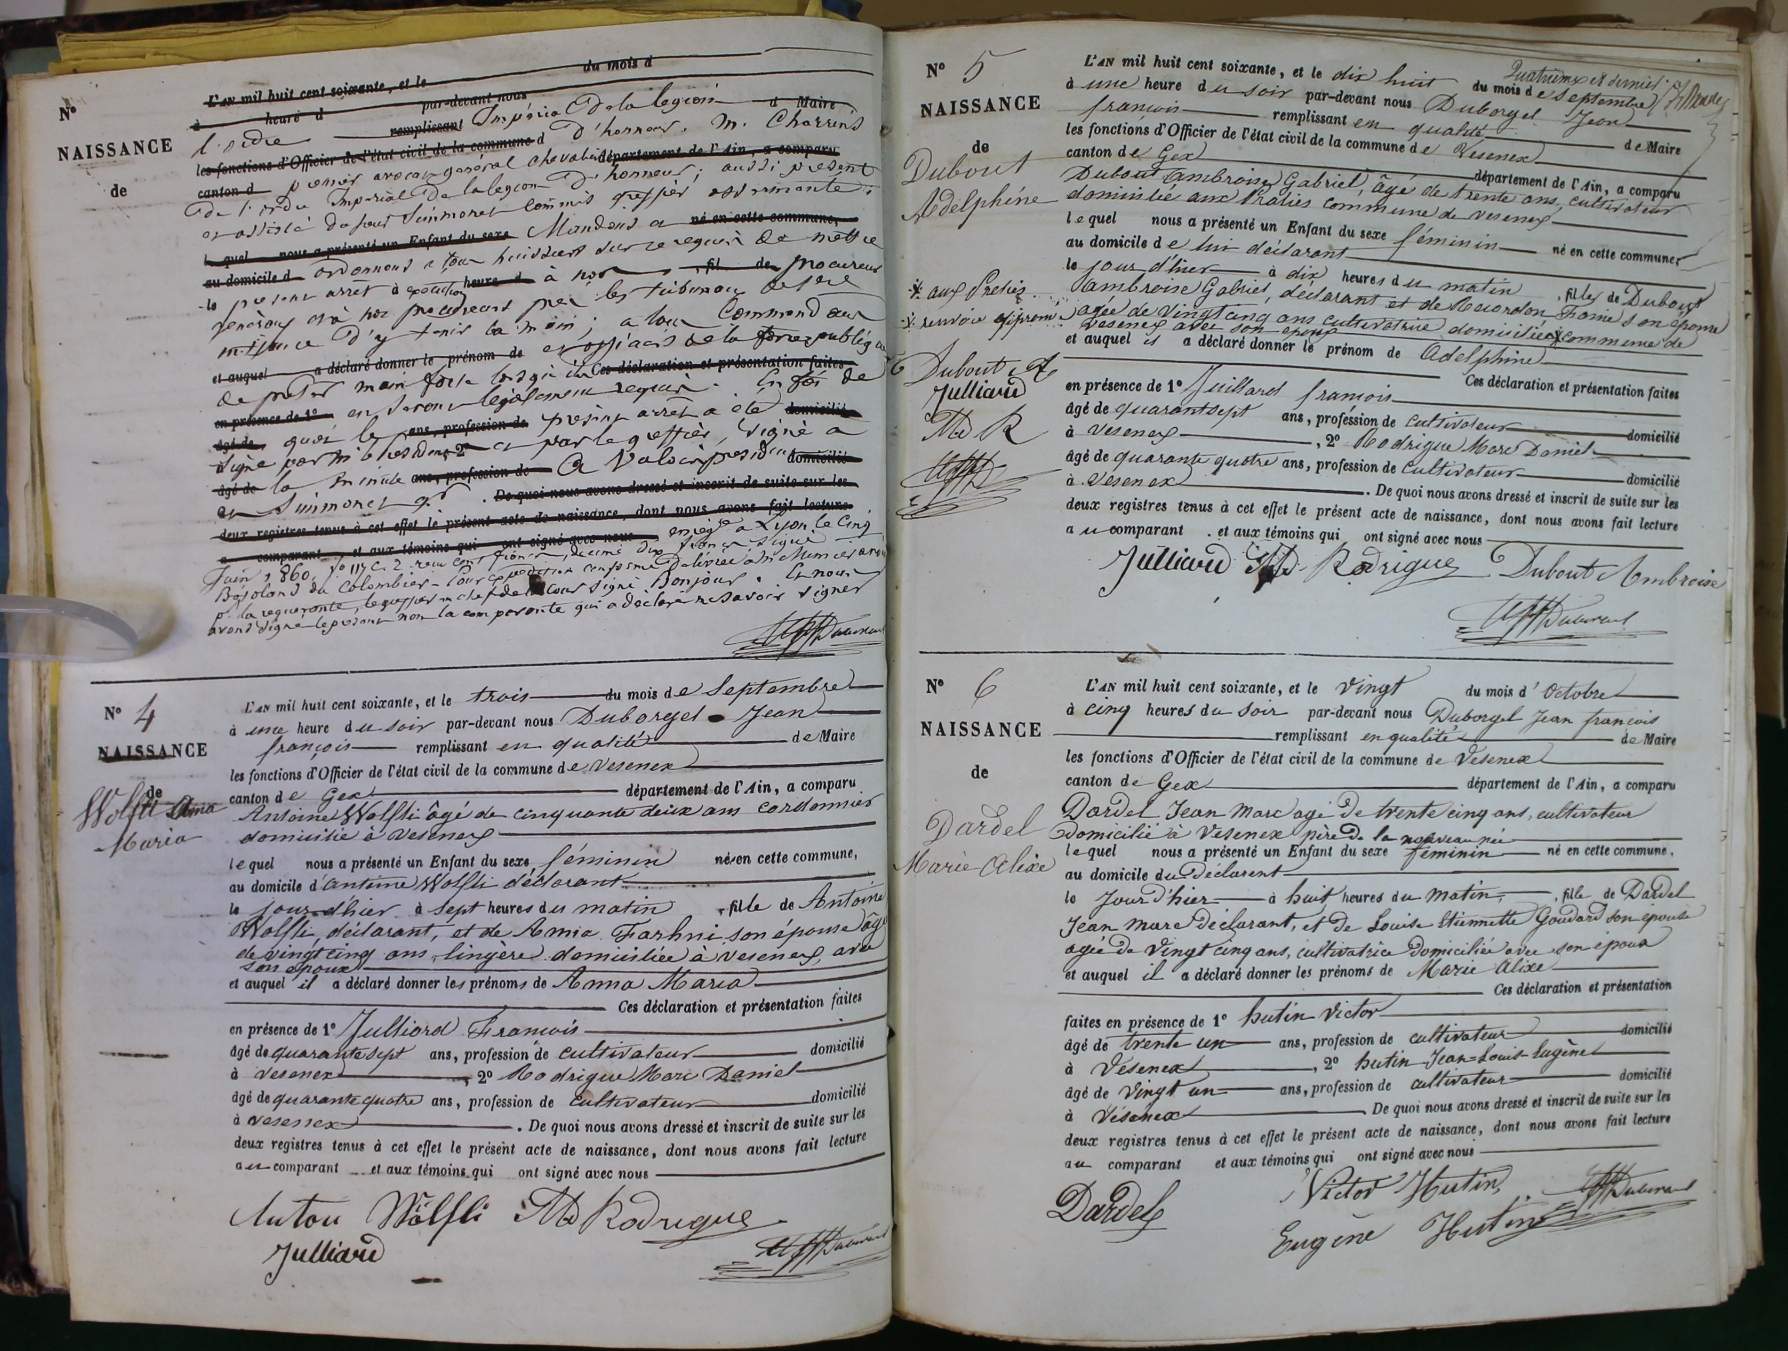 N°
NAISSANCE
de
L'AN mil huit cent soixante, et le du mois d
à heure d par-devant nous d Maire
l'ordre remplissant Impérial de la legion
les fonctions d'Officier de l'état civil de la commune d d'honneur. M. Charrins
canton d premier avocat général chevalier département de l'Ain, a comparu
de l'ordre Impérial de la legion d'honneur; aussi présent
et assisté du sieur Simonet commis greffier
l quel nous a présenté un Enfant du sexe Mandons a né en cette commune,
au domicile d ordonnons a tous huissiers sur ce requis de mettre
le présent arrêt à exécution heure d à nos , fil de procureurs
généraux et à nos procureurs près les tribunaux de 1ere
instance d'y tenir la main; a tous Commandants
et officiers de la force publique
et auquel a déclaré donner le prénom de
de prêter main forte lorsqu'ils Ces déclaration et présentation faites
en présence de 1° en seront légalement requis. En foi de
âgé de quoi le ans, profession de présent arrêt a été domicilié
signé par M le président 2° et par le greffier, signé a
âgé de la minute ans, profession de A Valois président domicilié
et Simonet gr . De quoi nous avons dressé et inscrit de suite sur les
deux registres tenus à cet effet le présent acte de naissance, dont nous avons fait lecture
a comparant et aux témoins qui ont signé avec nous enregé a Lyon le Cinq
Juin 1860,
Pour expédition conforme délivrée
p. la requerante, le greffier en chef de la Cour signé Bonjour. Et nous
avons signé le présent non la comparante qui a déclaré ne savoir signer
N° 4
NAISSANCE
de
Wolfli Anna
Maria
L'AN mil huit cent soixante, et le trois du mois de Septembre
à une heure du soir par-devant nous Duborgel Jean
françois remplissant en qualité de Maire
les fonctions d'Officier de l'état civil de la commune de Vesenex
canton de Gex département de l'Ain, a comparu
Antoine Wolfli âgé de cinquante deux ans cordonnier
domicilié à Vesenex
lequel nous a présenté un Enfant du sexe féminin né en cette commune,
au domicile d'antoine Wolfli déclarant
le jour d'hier à sept heures du matin , fille de Antoine
Wolfli, déclarant, et de Amia Farhni son épouse âgée
de vingt cinq ans, lingère domiciliée à vesenex, avec
son époux
et auquel il a déclaré donner les prénoms de Anna Maria
Ces déclaration et présentation faites
en présence de 1° Julliard François
âgé de quarante sept ans, profession de cultivateur domicilié
à Vesenex , 2° Rodrigue Marc Daniel
âgé de quarante quatre ans, profession de cultivateur domicilié
à vesenex . De quoi nous avons dressé et inscrit de suite sur les
deux registres tenus à cet effet le présent acte de naissance, dont nous avons fait lecture
au comparant et aux témoins qui ont signé avec nous
Anton Wölfli MD Rodrigue
Julliard
N° 5
NAISSANCE
de
Dubout
Adelphine
* aux Prélies
* renvoi approuvé
Dubout A
Julliard
MD R
Quatrième et dernier
L'AN mil huit cent soixante, et le dix huit du mois de septembre
à une heure du soir par-devant nous Duborgel Jean
françois remplissant en qualité de Maire
les fonctions d'Officier de l'état civil de la commune de Vesenex
canton de Gex département de l'Ain, a comparu
Dubout ambroise Gabriel, âgé de trente ans, cultivateur
domicilié aux Prélies commune de vesenex
lequel nous a présenté un Enfant du sexe féminin né en cette commune,
au domicile de lui déclarant
le jour d'hier à dix heures du matin , fille de Dubout
ambroise Gabriel, déclarant et de son épouse
agée de vingt cinq ans cultivatrice domiciliée * commune de
Vesenex avec son époux
et auquel il a déclaré donner le prénom de Adelphine
Ces déclaration et présentation faites
en présence de 1° Juillard françois
âgé de quarant sept ans, profession de cultivateur domicilié
à Vesenex , 2° Rodrigue Marc Daniel
âgé de quarante quatre ans, profession de cultivateur domicilié
à Vesenex . De quoi nous avons dressé et inscrit de suite sur les
deux registres tenus à cet effet le présent acte de naissance, dont nous avons fait lecture
au comparant et aux témoins qui ont signé avec nous
Julliard MD Rodrigue Dubout Ambroise
N° 6
NAISSANCE
de
Dardel
Marie Alixe
L'AN mil huit cent soixante, et le vingt du mois d'Octobre
à cinq heures du soir par-devant nous Duborgel Jean françois
remplissant en qualité de Maire
les fonctions d'Officier de l'état civil de la commune de Vésenex
canton de Gex département de l'Ain, a comparu
Dardel Jean Marc agé de trente cinq ans, cultivateur
Domicilié à Vésenex père de la nouveau née
lequel nous a présenté un Enfant du sexe féminin né en cette commune,
au domicile du Déclarent
le Jour d'hier à huit heures du matin , fille de Dardel
Jean marc déclarant, et de Louise Etiennette Goudard son epouse
agée de vingt cinq ans, cultivatrice Domiciliée avec son époux
et auquel il a déclaré donner les prénoms de Marie Alixe
Ces déclaration et présentation
faites en présence de 1° hutin Victor
âgé de trente un ans, profession de cultivateur domicilié
à Vésenex , 2° hutin Jean-Louis Eugène
âgé de vingt un ans, profession de cultivateur domicilié
à Vésenex . De quoi nous avons dressé et inscrit de suite sur les
deux registres tenus à cet effet le présent acte de naissance, dont nous avons fait lecture
au comparant et aux témoins qui ont signé avec nous
Dardel Victor Hutin
Eugène Hutin